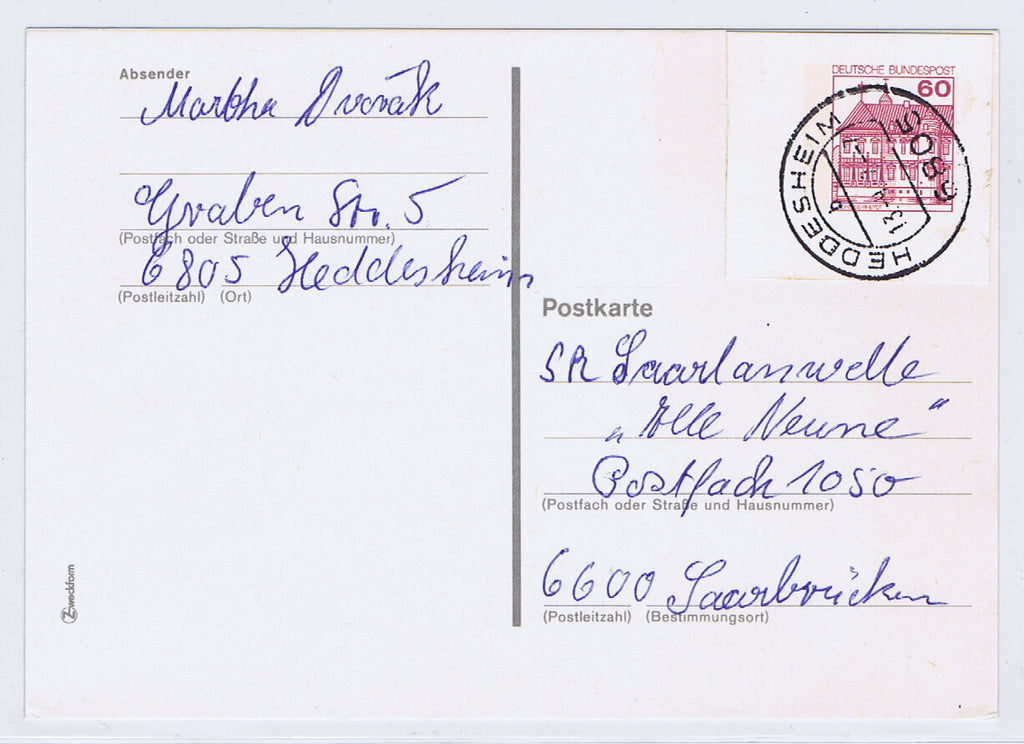 Absender
Martha Dvořák
Graben Str. 5
(Postfach oder Straße und Hausnummer)
6805 Heddesheim
(Postleitzahl) (Ort)
Zweckform
DEUTSCHE BUNDESPOST
60
6805 HEDDESHEIM
Postkarte
SR Saarlandwelle
„Alle Neune“
Postfach 1050
(Postfach oder Straße und Hausnummer)
6600 Saarbrücken
(Postleitzahl) (Bestimmungsort)